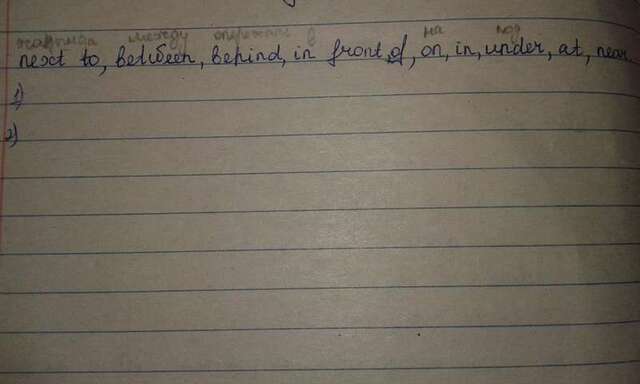 между на под
next to, between, behind, in front of, on, in, under, at, near
1)
2)